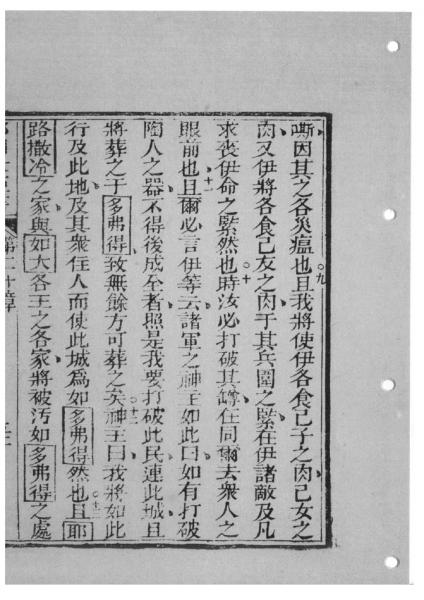 嘶因其之各災瘟也九且我將使伊各食己子之肉己女之
肉又伊將各食己友之肉于其兵圍之緊在伊諸敵及凡
求喪伊命之緊然也十時汝必打破其罇在同爾去衆人之
眼前也十一且爾必言伊等云諸軍之神主如此曰如有打破
陶人之器不得後成全者照是我要打破此民連此城且
將葬之于多弗得致無餘方可葬之矣十二神主曰我將如此
行及此地及其衆住人而使此城爲如多弗得然也十三且耶
路撒冷之家與如大各王之各家將被汚如多弗得之處